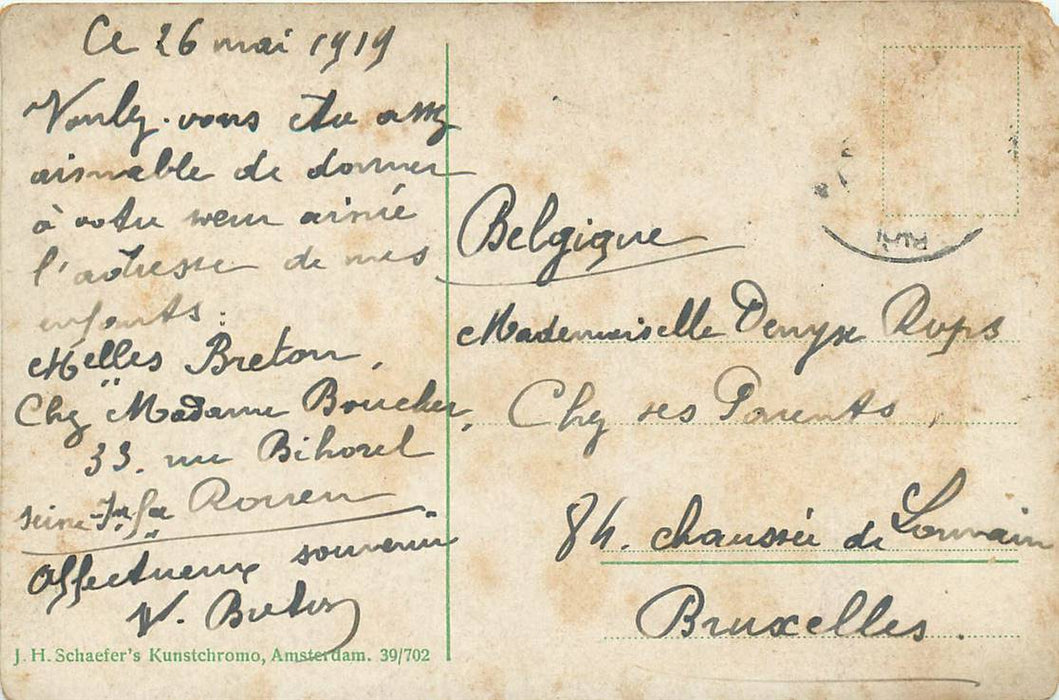 Ce 26 mai 1919
Voulez-vous être assez
aimable de donner
à votre sœur aimée
l'adresse de mes
enfants :
Melles Breton,
Chez "Madame Boucher,
33. rue Bihorel
Seine-Infre Rouen
Affectueux souvenir
V. Breton
J. H. Schaefer's Kunstchromo, Amsterdam. 39/702
Belgique
Mademoiselle Denyse Rops
Chez ses Parents,
84. chaussée de Louvain
Bruxelles.